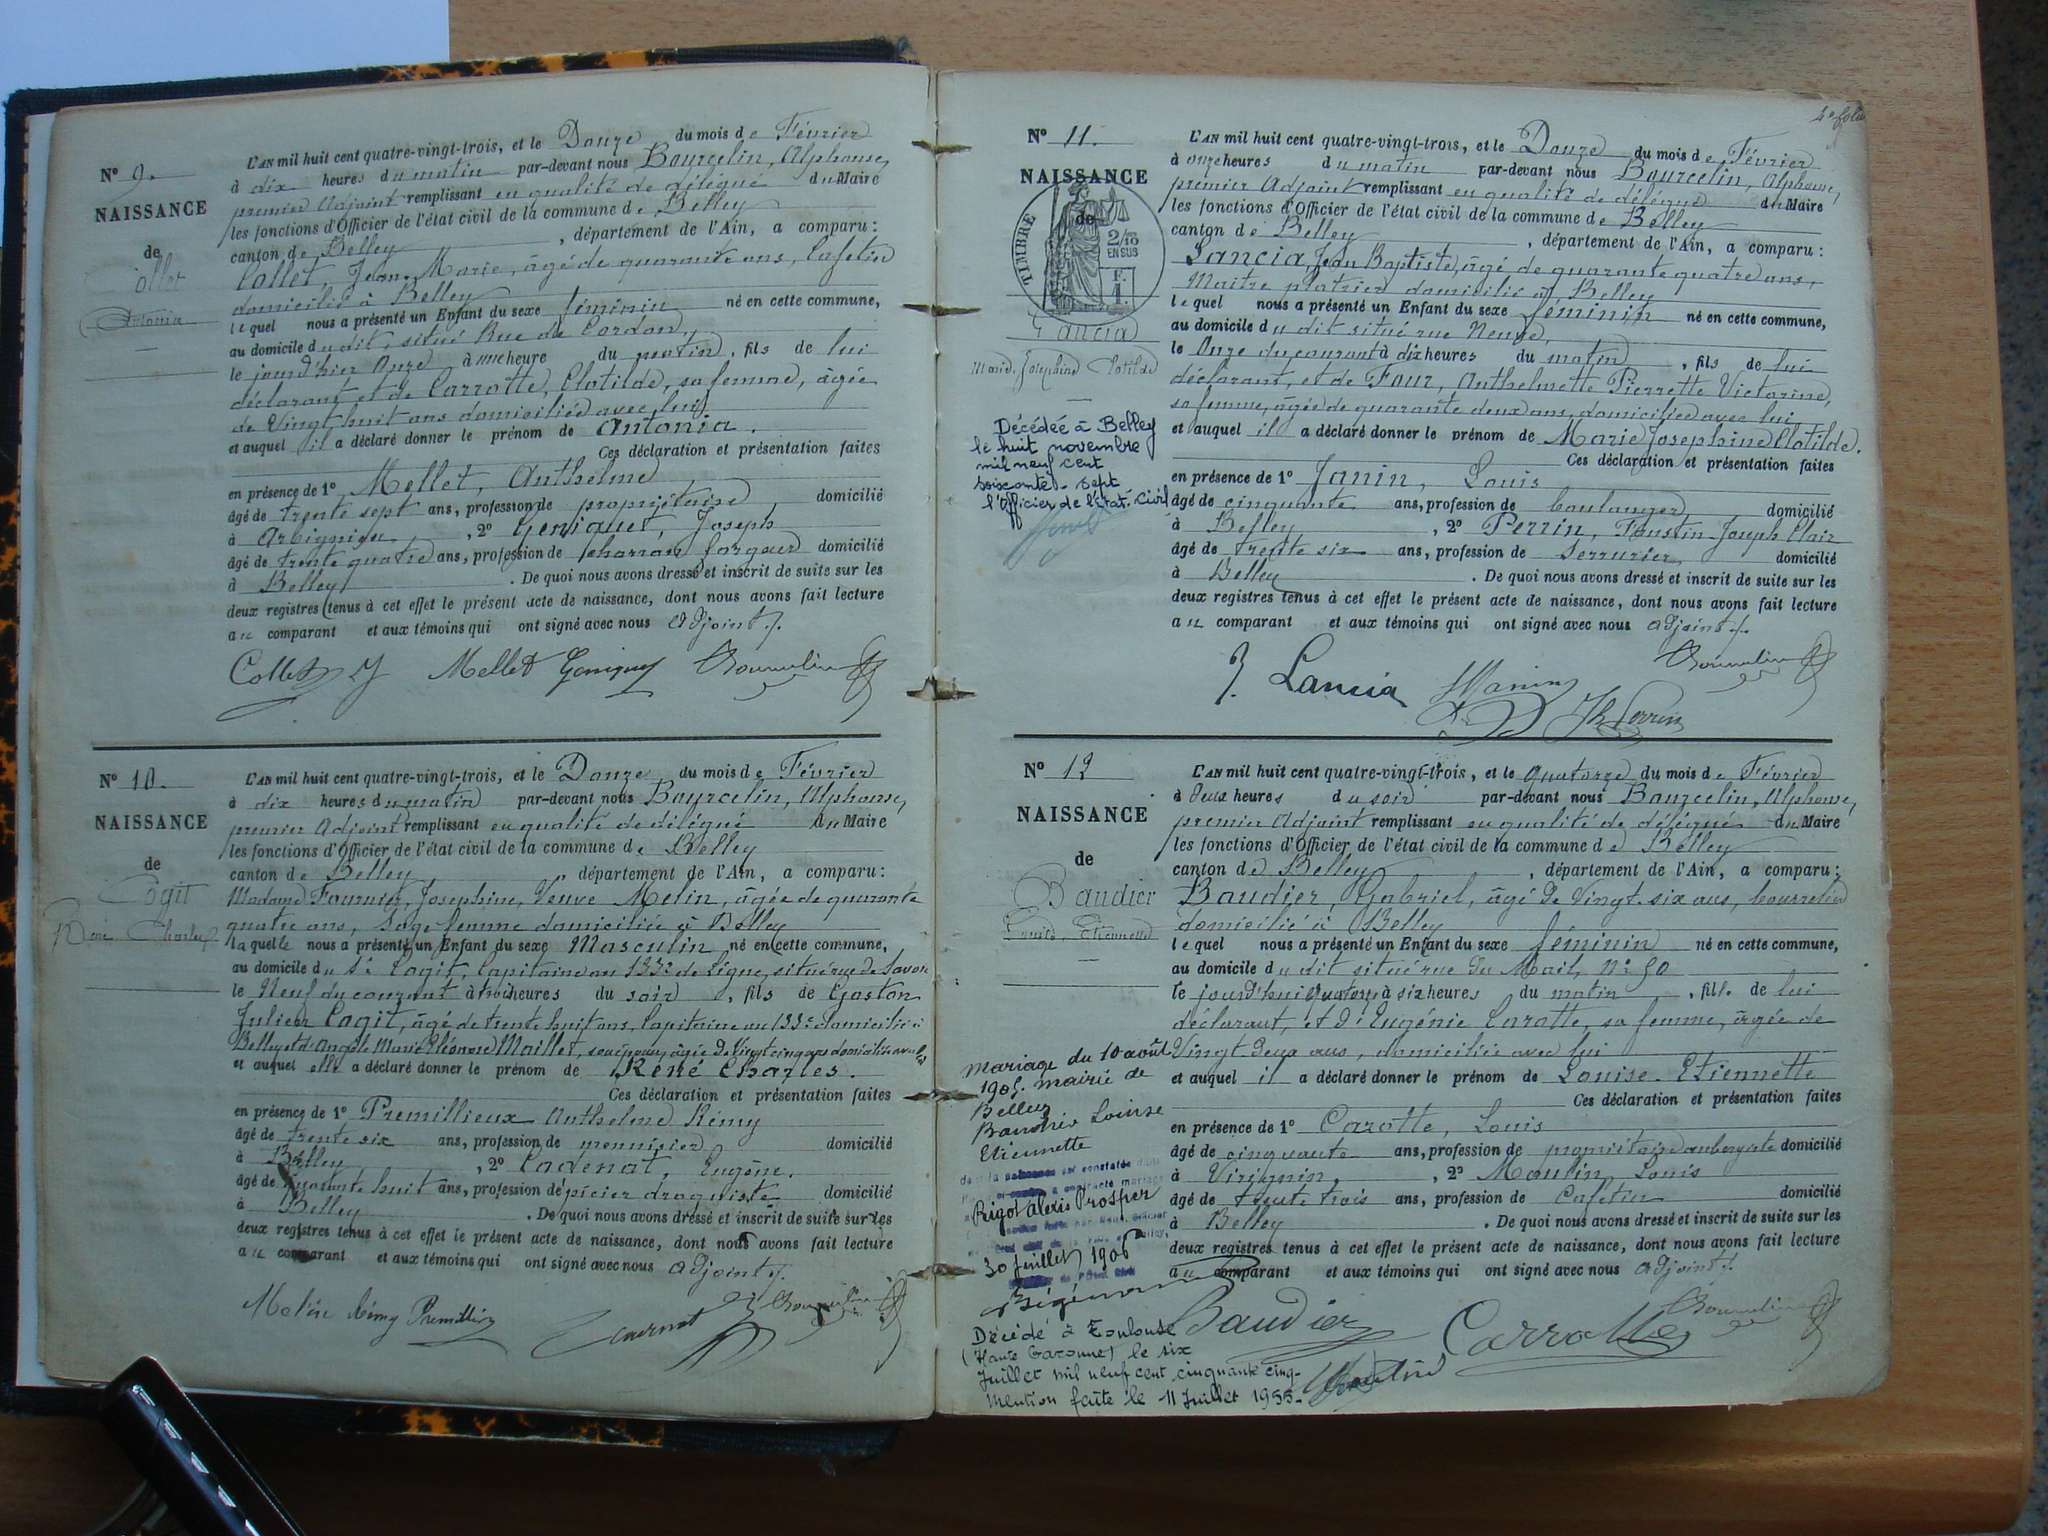 N° 9.
NAISSANCE
de
Collet
Antonia
L'AN mil huit cent quatre-vingt-trois, et le Douze du mois de Février
à dix heures du matin par-devant nous Bourcelin, Alphonse,
premier Adjoint remplissant en qualité de délégué du Maire
les fonctions d'Officier de l'état civil de la commune de Belley
canton de Belley, département de l'Ain, a comparu :
Collet, Jean-Marie, âgé de quarante ans, Cafetier
domicilié à Belley
lequel nous a présenté un Enfant du sexe féminin né en cette commune,
au domicile du dit, situé Rue de Cordon,
le jourd'hier Onze à une heure du matin, fils de lui
déclarant et de Carrotte, Clotilde, sa femme, âgée
de Vingt huit ans domiciliée avec lui
et auquel il a déclaré donner le prénom de Antonia.
Ces déclaration et présentation faites
en présence de 1° Mellet, Anthelme
âgé de trente sept ans, profession de propriétaire domicilié
à Arbignieu, 2° Geniquet, Joseph
âgé de trente quatre ans, profession de charron forgeur domicilié
à Belley. De quoi nous avons dressé et inscrit de suite sur les
deux registres tenus à cet effet le présent acte de naissance, dont nous avons fait lecture
au comparant et aux témoins qui ont signé avec nous adjoint.
Collet J Mellet Bourcelin
N° 10.
NAISSANCE
de
Cogit
René Charles
L'AN mil huit cent quatre-vingt-trois, et le Douze du mois de Février
à dix heures du matin par-devant nous Bourcelin, Alphonse,
premier Adjoint remplissant en qualité de délégué du Maire
les fonctions d'Officier de l'état civil de la commune de Belley
canton de Belley, département de l'Ain, a comparu :
Madame Fournier, Josephine, Veuve Melin, âgée de quarante
quatre ans, Sage femme domiciliée à Belley
laquelle nous a présenté un Enfant du sexe Masculin né en cette commune,
au domicile du Sr Cogit, Capitaine au 133e de Ligne, situé rue de Savoie
le Neuf du courant à trois heures du soir, fils de Gaston
Julien Cogit, âgé de trente huit ans, Capitaine au 133e domicilié à
Belley et d'Angèle Marie Eléonore Maillet, son épouse, âgée de Vingt cinq ans domiciliée avec lui
et auquel elle a déclaré donner le prénom de René Charles.
Ces déclaration et présentation faites
en présence de 1° Premillieux Anthelme Rémy
âgé de trente six ans, profession de menuisier domicilié
à Belley, 2° Cadenat, Eugène.
âgé de quarante huit ans, profession de épicier droguiste domicilié
à Belley. De quoi nous avons dressé et inscrit de suite sur les
deux registres tenus à cet effet le présent acte de naissance, dont nous avons fait lecture
au comparant et aux témoins qui ont signé avec nous adjoint.
Bourcelin
N° 11.
NAISSANCE
de
TIMBRE
2/10
EN SUS
F.
1.
Lancia
Marie Josephine Clotilde
Décédée à Belley
le huit novembre
mil neuf cent
soixante-sept
l'Officier de l'état-civil
L'AN mil huit cent quatre-vingt-trois, et le Douze du mois de Février
à onze heures du matin par-devant nous Bourcelin, Alphonse,
premier Adjoint remplissant en qualité de délégué du Maire
les fonctions d'Officier de l'état civil de la commune de Belley
canton de Belley, département de l'Ain, a comparu :
Lancia, Jean Baptiste, âgé de quarante quatre ans,
Maitre platrier domicilié à Belley
lequel nous a présenté un Enfant du sexe féminin né en cette commune,
au domicile du dit situé rue Neuve,
le Onze du courant à dix heures du matin, fils de lui
déclarant, et de Four, Anthelmette Pierrette Victorine,
sa femme, âgée de quarante deux ans, domiciliée avec lui
et auquel il a déclaré donner le prénom de Marie Josephine Clotilde.
Ces déclaration et présentation faites
en présence de 1° Janin, Louis
âgé de cinquante ans, profession de boulanger domicilié
à Belley, 2° Perrin, Faustin Joseph Clair
âgé de trente six ans, profession de serrurier domicilié
à Belley. De quoi nous avons dressé et inscrit de suite sur les
deux registres tenus à cet effet le présent acte de naissance, dont nous avons fait lecture
au comparant et aux témoins qui ont signé avec nous adjoint.
J. Lancia Bourcelin
Perrin
N° 12
NAISSANCE
de
Baudier
Louise Etiennette
Mariage du 10 août
1905. mairie de
Belley
Baudier Louise
Etiennette
Rigot Alexis Prosper
30 juillet 1906
Décédé à Toulouse
(Haute Garonne) le six
Juillet mil neuf cent cinquante cinq-
Mention faite le 11 Juillet 1955.
L'AN mil huit cent quatre-vingt-trois, et le quatorze du mois de Février
à deux heures du soir par-devant nous Bourcelin, Alphonse,
premier Adjoint remplissant en qualité de délégué du Maire
les fonctions d'Officier de l'état civil de la commune de Belley
canton de Belley, département de l'Ain, a comparu :
Baudier, Gabriel, âgé de Vingt-six ans, bourrelier
domicilié à Belley
lequel nous a présenté un Enfant du sexe féminin né en cette commune,
au domicile du dit situé rue du Mail, N° 50
le jourd'hui quatorze à six heures du matin, fils de lui
déclarant, et d'Eugénie Carotte, sa femme, âgée de
Vingt-deux ans, domiciliée avec lui
et auquel il a déclaré donner le prénom de Louise-Etiennette
Ces déclaration et présentation faites
en présence de 1° Carotte, Louis
âgé de cinquante ans, profession de propriétaire aubergiste domicilié
à Virignin, 2° Moulin, Louis
âgé de trente trois ans, profession de Cafetier domicilié
à Belley. De quoi nous avons dressé et inscrit de suite sur les
deux registres tenus à cet effet le présent acte de naissance, dont nous avons fait lecture
au comparant et aux témoins qui ont signé avec nous adjoint.
Baudier Carrotte Bourcelin
Moulin